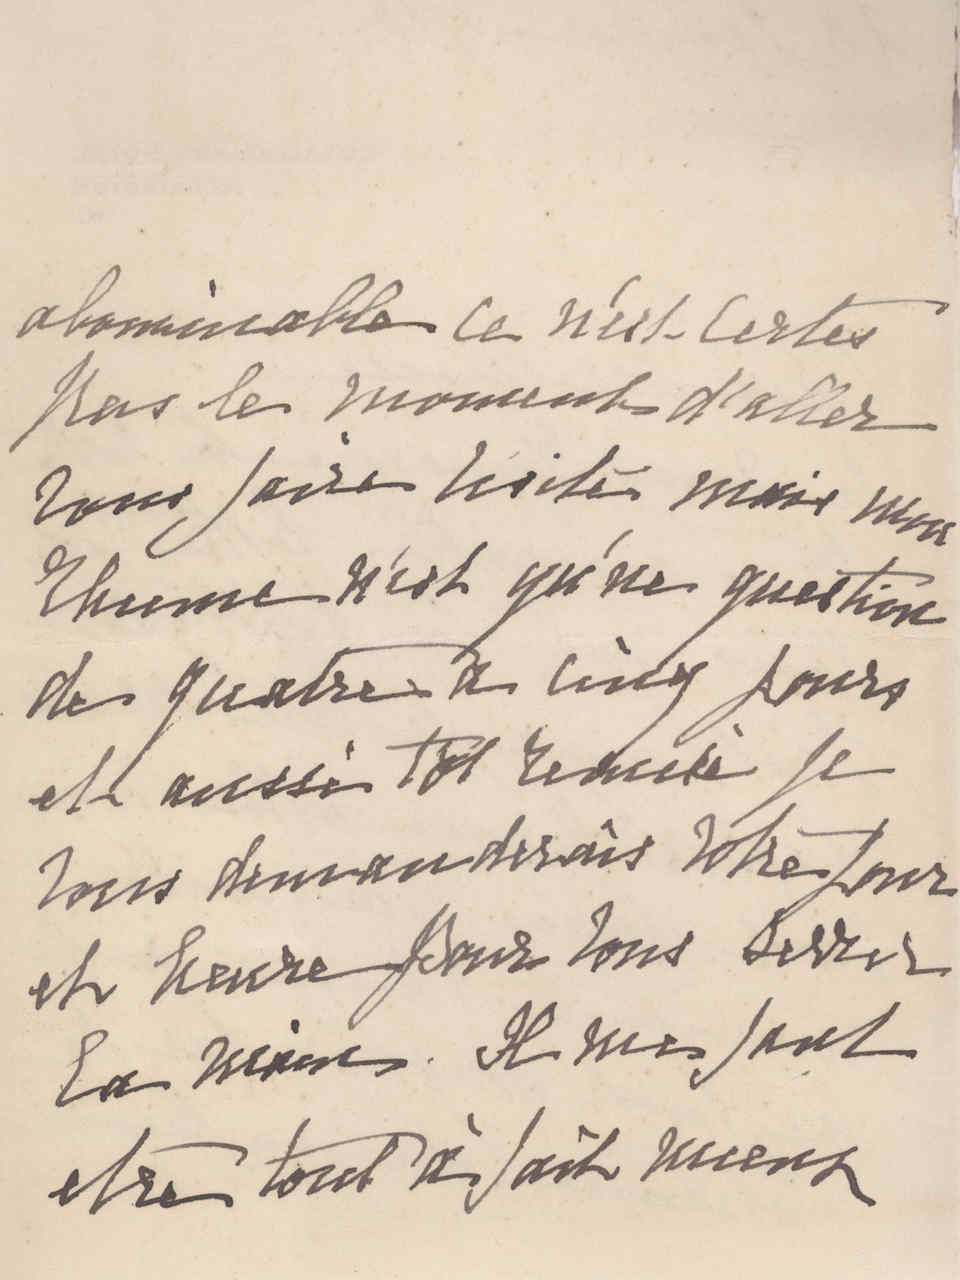 abominable ce n'est certes
pas le moment d'aller
vous faire visite mais mon
rhume n'est qu'une question
de quatre à cinq jours
et aussi tôt remise je
vous demanderais votre jour
et heure pour vous serrer
la main. Il me faut
etre tout à fait mieux